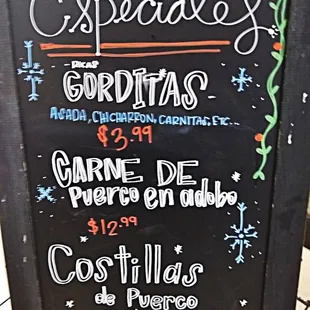 Especiales
RICAS
GORDITAS
ASADA, CHICHARRON, CARNITAS, ETC...
$3.99
CARNE DE
Puerco en adobo
$12.99
Costillas
de Puerco